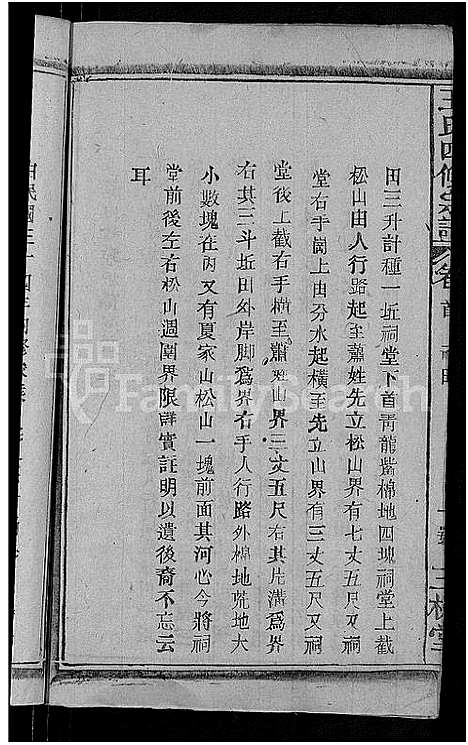 王氏四修宗譜 卷 首
三槐堂
田三升計種一坵祠堂下首靑龍嘴棉地四塊祠堂上截
松山由人行路起至蕭姓先立松山界有七丈五尺又祠
堂右手崗上由分水起橫至先立山界有三丈五尺又祠
堂後上截右手橫至蕭姓山界三丈五尺右其片溝爲界
右其三斗坵田外岸脚爲界右手人行路外棉地荒地大
小數塊在內又有夏家山松山一塊前面其河心今將祠
堂前後左右松山週圍界限詳實註明以遺後裔不忘云
耳
FamilySearch